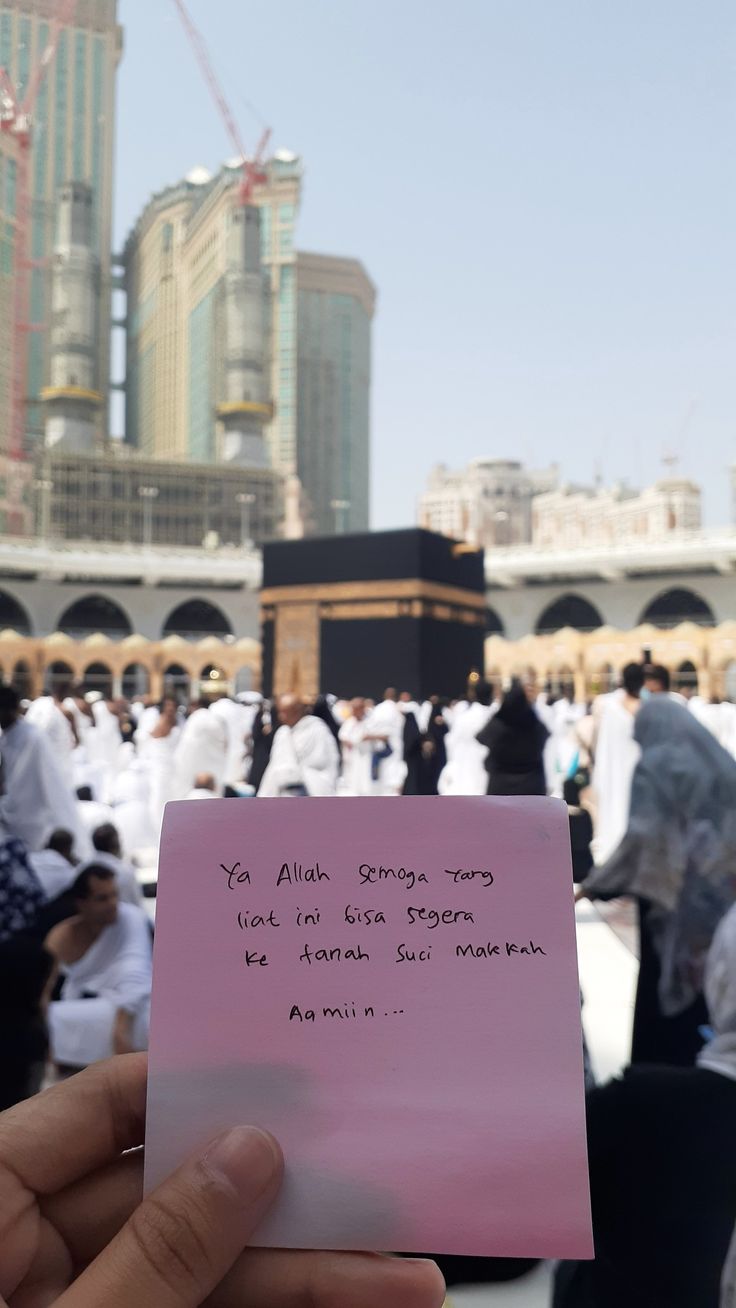 Ya Allah semoga yang
liat ini bisa segera
ke tanah suci Makkah
Aamiin...